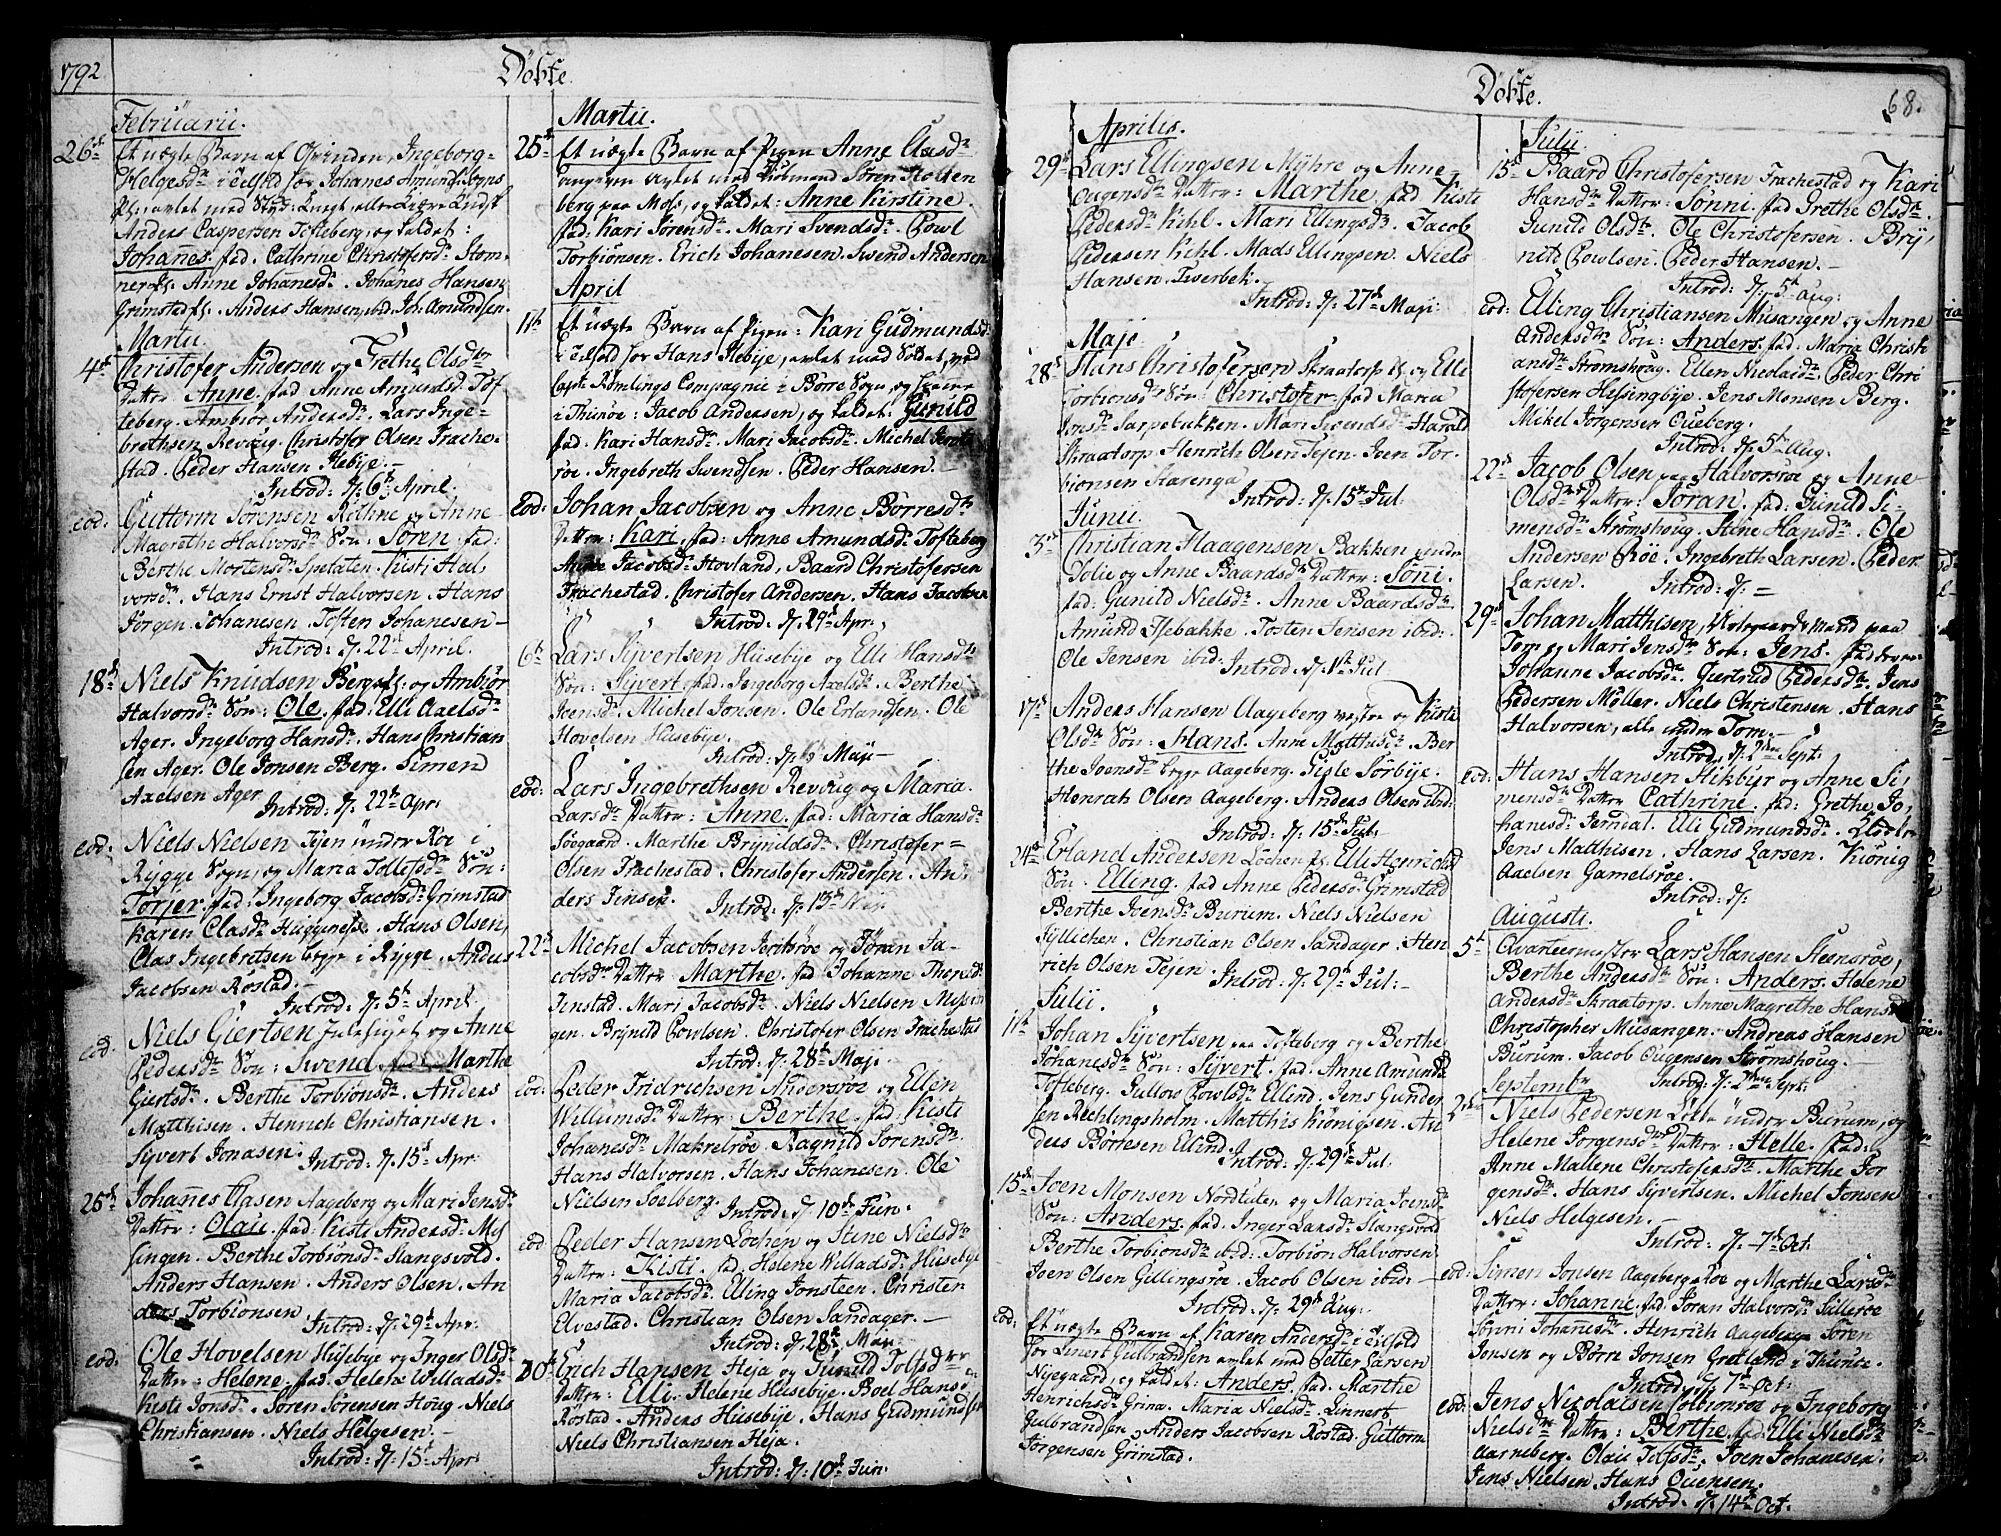 1792
Döbte.
Februarii.
26de Et uægte Barn af Qvinden, Ingeborg
Helgesdr i Eidsfos hos Johanes Amundsens
Anders Caspersen Tofteberg, og kaldet:
Johanes. fad. Cathrine Christofersdr
Anne Johanesdr. Johanes Hansen
Grimstad. Anders Hansen, ibid. Joh. Amundsen.
Martii.
4de Christofer Andersen og Grethe Olsdr
Datter: Anne. fad: Anne Amundsd. Tof-
teberg. Ambiör Andersdr. Lars Inge-
brethsen Revoug. Christofer Olsen Trache-
stad. Peder Hansen Hebÿe.
Introd: d. 6te April.
eod: Guttorm Sörensen Röthne og Anne
Magrethe Halvorsdr Sön: Sören. fad:
Berthe Mortensdr Spetalen. Kisti Hal-
vorsdr. Hans Ernst Halvorsen. Hans
Jörgen Johanesen. Tosten Johanesen
Introd: d. 22de April.
18de Niels Knudsen Berg og Ambiör
Halvorsdr Sön: Ole. fad: Elli Axelsdr
Ager. Ingeborg Hansdr. Hans Christian
sen Ager. Ole Jonsen Berg. Simen
Axelsen Ager
Introd: d. 22de Apr:
eod: Niels Nielsen Tejen under Roe i
Rygge Sogn, og Maria Tollefsdr Sön:
Torjer. fad: Ingeborg Jacobsdr Grimstad
Karen Clasdr Huggenes. Hans Olsen,
Clas Ingebretsen begge i Rygge. Anders
Jacobsen Rostad.
Introd: d. 5te April
eod. Niels Giertsen Julesiget og Anne
Pedersdr Sön: Svend. Marthe
Giertsdr. Berthe Torbionsdr. Anders
Matthisen. Henrich Christiansen.
Syvert Jonasen.
Introd: d. 15de Apr:
25de Johannes Clasen Aageberg og Mari Jensdr
Datter: Olau. fad: Kisti Andersdr Mÿs
singen. Berthe Torbionsdr Slangsvold.
Anders Hansen. Anders Olsen. An
ders Torbionsen
Introd: d. 29de Apr:
eod: Ole Hovelsen Husebye og Inger Olsdr
Datter: Helene. fad. Helena Willadsdr
Kisti Jonsdr. Sören Sörensen Houg. Niels
Christiansen. Niels Helgesen.
Introd: d. 15de Apr:
Martii.
25de Et uægte Barn af Pigen Anne Clasdr
angiven avlet med Kiöbmand Sören Holten
berg paa Moss, og kaldet: Anne Kirstine.
fad: Kari Sörensdr. Mari Svendsdr. Powl
Torbiönsen. Erich Johanesen. Svend Andersen
April
1ste Et uægte Barn af Pigen: Kari Gudmunds
i Eidsfos hos Hans Hebÿe, avlet med Soldat, ved
Capt Römlings Compagnie i Börre Sogn, og
i Thunöe: Jacob Andersen, og kaldet: Gunild
fad. Kari Hansdr. Mari Jacobsdr. Michel
röe. Ingebreth Swendsen. Peder Hansen.
Eod: Johan Jacobsen og Anne Börresdr
Datter: Kari. fad: Anne Amundsdr Tofteberg
Anne Jacobsdr Hovland, Baard Christofersen
Trachestad. Christofer Andersen. Hans Jacobsen
Introd: d. 29de Apr:
6te Lars Syvertsen Husebÿe og Elli Hansdr
Sön: Syvert. fad: Ingeborg Axelsdr. Berthe
Joensdr. Michel Jonsen. Ole Erlandsen. Ole
Hovelsen Husebye.
Introd: d. 6te Maji
eod: Lars Ingebrethsen Revoug og Maria
Larsdr Datter: Anne. fad: Maria Hansdr
Söegaard. Marthe Brynildsdr. Christofer
Olsen Trachestad. Christofer Andersen. An-
ders Jensen.
Introd: d. 13de Maji
22de Michel Jacobsen Jeritsröe og Joran Ja-
cobsdr Datter: Marthe. fad Johanne Thersdr
Jenstad. Mari Jacobsdr. Niels Nielsen Myssin
gen. Brynild Powlsen. Christofer Olsen Trachestad
Introd: d. 28de Maji
eod: Peder Fridrichsen Andersröe og Ellen
Willumsdr Datter: Berthe. fad: Kisti
Johanesdr Makrelröe. Ragnild Sörensdr
Hans Halvorsen. Hans Johanesen. Ole
Nielsen Soelberg.
Introd: d. 10de Jun:
eod Peder Hansen Löchen og Stine Nielsdr
Datter: Kisti. fad. Helene Willadsdr Husebye
Maria Jacobsdr. Elling Jonsteen. Christen
Elvestad. Christian Olsen Sandager.
Introd: d. 28de Maji
20de Erich Hansen Heja og Gunild Tolfsdr
Datter: Elli. Helene Husebye. Boel Hans
Röstad. Anders Husebÿe. Hans Gudmundsen
Niels Christiansen Heja.
Introd: d. 10de Jun:
Döbte.
68.
Aprilis.
29de Lars Ellingsen Mÿhre og Anne
Ougensdr Datter: Marthe. fad Kisti
Pedersdr Kihl. Mari Ellingsdr. Jacob
Pedersen Kihl. Mads Ellingsen. Niels
Hansen Tverbek.
Introd: d. 27de Maji
Maji.
28de Hans Christofersen Skraatorp og Elli
Torbionsdr Sön: Christofer. fad Maria
Sarpebakken. Mari Svendsdr. Harald
Skraatorp Henrich Olsen Tejen. Joen Tor-
bionsen Karenga
Introd: d. 15de Jul:
Junii.
3de Christian Haagensen Bakken under
Solie og Anne Baardsdr Datter: Jöni.
fad: Gunild Nielsdr. Anne Baardsdr.
Amund Isebakke. Tosten Jensen ibid:
Ole Jensen ibid:
Introd: d. 1ste Jul:
17de Anders Hansen Aageberg vestre og Kisti
Olsdr Sön: Hans. Anne Matthisdr. Ber
the Joensdr begge Aageberg. Gisle Sörbÿe.
Henrich Olsen Aageberg. Anders Olsen ibid:
Introd: d. 15de Jul:
24de Erland Andersen Löchen Elli Henrichsdr
Sön: Elling. fad Anne Pedersdr Grimstad
Berthe Joensdr Burum. Niels Nielsen
Jÿllichen. Christian Olsen Sandager. Hen
rich Olsen Tejen.
Introd: d. 29de Jul:
Julii.
1ste Johan Syvertsen paa Tofteberg og Berthe
Johanesdr Sön: Syvert. fad: Anne Amunds
Tofteberg. Gullow Powlsdr Ellind. Jens Gunder
sen Rechlingsholm. Matthis Königsen. An
ders Börresen Ellind.
Introd: d. 29de Jul:
15de Joen Monsen Nordtuten og Maria Svensdr
Sön: Anders. fad. Inger Larsdr Slangsvold
Berthe Torbionsdr ibid: Torbion Halvorsen
Joen Olsen Gillingsröe. Jacob Olsen ibid:
Introd: d. 29de Aug:
eod: Et uægte Barn af Karen Andersdr i Eidsfos
hos Linert Gulbrandsen avlet med Petter Larsen
Nygaard, og kaldet: Anders. fad. Marthe
Henrichsdr Grina. Maria Nielsdr. Linnert
Gulbrandsen. Anders Jacobsen Rostad. Guttorm
Jörgensen Grimstad.
Julii
15de Baard Christofersen Trachestad og Kari
Hansdr Datter: Jonne. fad Grethe Olsdr.
Gunild Olsdr. Ole Christofersen. Brÿ,
nild Powlsen. Peder Hansen.
Introd: d. 5te Aug:
eod: Elling Christiansen Musangen og Anne
Andersdr Sön: Anders. fad: Maria Christi
ansdr Strömshoug. Ellen Nicolaisdr. Peder Chri
stofersen Helsingbye. Jens Monsen Berg.
Mikel Jörgensen Oueberg.
Introd: d. 5te Aug.
22de Jacob Olsen paa Halvorsröe og Anne
Olsdr Datter: Joran. fad: Gunild Si-
mensdr Strömshoug. Stine Hansdr. Ole
Andersen Roe. Ingebreth Larsen. Peder
Larsen.
Introd: d:
29de Johan Matthisen, mand paa
Tom og Mari Jensdr Sön: Jens.
Johanne Jacobsdr. Giertrud Pedersdr. Jens
Pedersen Möller. Niels Christensen. Hans
Halvorsen, alle under Tom.
Introd. d. 2den Sept:
eod: Hans Hansen Hikbier og Anne Si,
mensdr Datter Cathrine. fad: Grethe Jo,
hanesdr Jemdal. Elli Gudmundsdr.
Jens Matthisen. Hans Larsen. König
Axelsen Gamelsröe.
Introd: d:
Augusti.
5te Qvarteermester Lars Hansen Steensröe,
Berthe Andersdr Sön: Anders. Helene
Andersdr Skraatorp. Anne Magrethe Hansdr
Christopher Musangen. Andreas Hansen
Burum. Jacob Ougensen Strömshoug.
Introd: d. 2den Sept:
Septembr
2den Niels Pedersen Lökke under Burum, og
Helene Jörgensdr Datter: Helle. fad:
Anne Mallene Christofersdr. Marthe Jör
gensdr. Hans Syvertsen. Michel Jonsen
Niels Helgesen.
Introd: d. 7de Oct:
eod: Simen Jonsen Aagebergsröe og Marthe Larsdr
Datter: Johanne. fad. Joran Halvorsdr Sillesröe
Jonni Johanesdr. Henrich Aageberg. Sören
Jonsen og Börre Jonsen Gretland i Thunöe.
Introd: d. 7de Oct:
eod: Jens Nicolaisen Colbionsröe og Ingeborg
Nielsdr Datter: Berthe. fad: Elli Nielsdr
Aarneberg. Olau Tolfsdr. Joen Johanesen.
Jens Nielsen. Hans Ouensen.
Introd: d. 14de Oct: